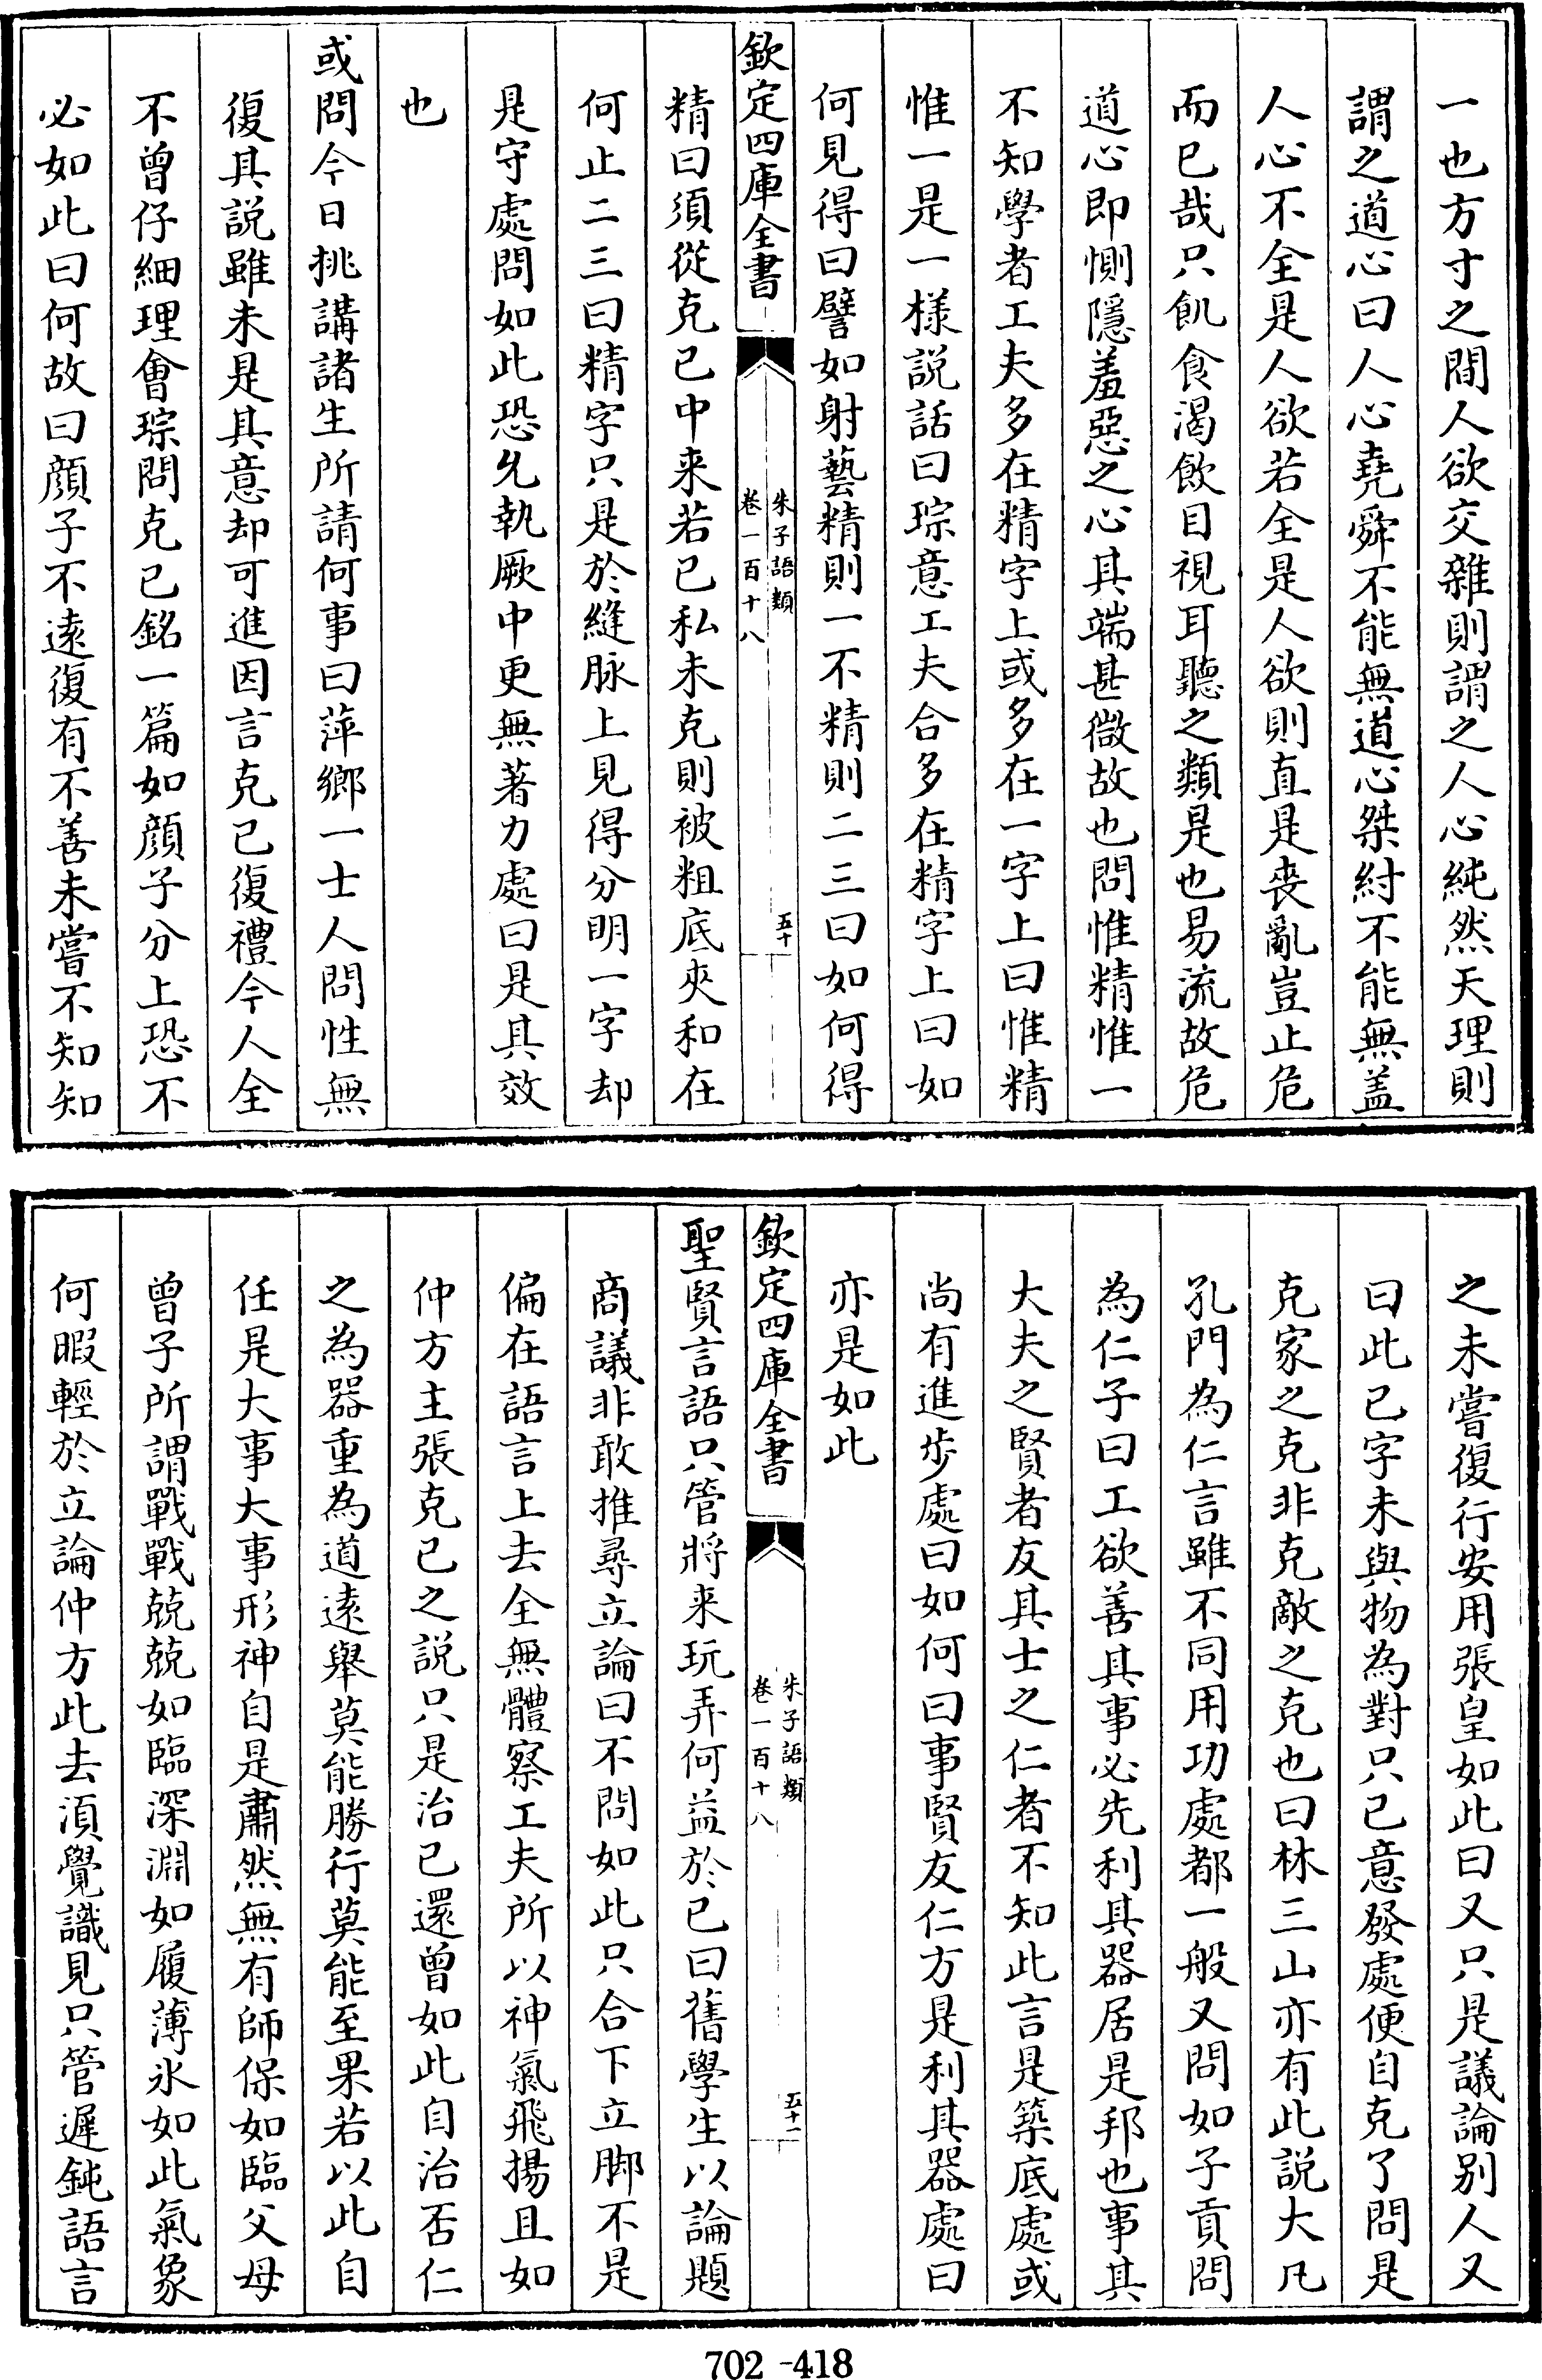 一也方寸之間人欲交雜則謂之人心純然天理則
謂之道心曰人心堯舜不能無道心桀紂不能無盖
人心不全是人欲若全是人欲則直是喪亂豈止危
而已哉只飢食渴飲目視耳聽之類是也易流故危
道心即惻隱羞惡之心其端甚微故也問惟精惟一
不知學者工夫多在精字上或多在一字上曰惟精
惟一是一樣説話曰琮意工夫合多在精字上曰如
何見得曰譬如射藝精則一不精則二三曰如何得
欽定四庫全書
朱子語類
卷一百十八
五十
精曰須從克已中来若已私未克則被粗底夾和在
何止二三曰精字只是於縫脉上見得分明一字却
是守處問如此恐允執厥中更無著力處曰是其效
也
或問今日挑講諸生所請何事曰萍鄉一士人問性無
復其説雖未是其意却可進因言克已復禮今人全
不曾仔細理會琮問克已銘一篇如顔子分上恐不
必如此曰何故曰顔子不逺復有不善未嘗不知知
之未嘗復行安用張皇如此曰又只是議論别人又
曰此已字未與物為對只已意發處便自克了問是
克家之克非克敵之克也曰林三山亦有此説大凡
孔門為仁言雖不同用功處都一般又問如子貢問
為仁子曰工欲善其事必先利其器居是邦也事其
大夫之賢者友其士之仁者不知此言是築底處或
尚有進步處曰如何曰事賢友仁方是利其器處曰
亦是如此
欽定四庫全書
朱子語類
卷一百十八
五十一
聖賢言語只管將来玩弄何益於已曰舊學生以論題
商議非敢推尋立論曰不問如此只合下立脚不是
偏在語言上去全無體察工夫所以神氣飛揚且如
仲方主張克已之説只是治已還曾如此自治否仁
之為器重為道逺舉莫能勝行莫能至果若以此自
任是大事大事形神自是肅然無有師保如臨父母
曾子所謂戰戰兢兢如臨深淵如履薄氷如此氣象
何暇輕於立論仲方此去須覺識見只管遲鈍語言
702-418